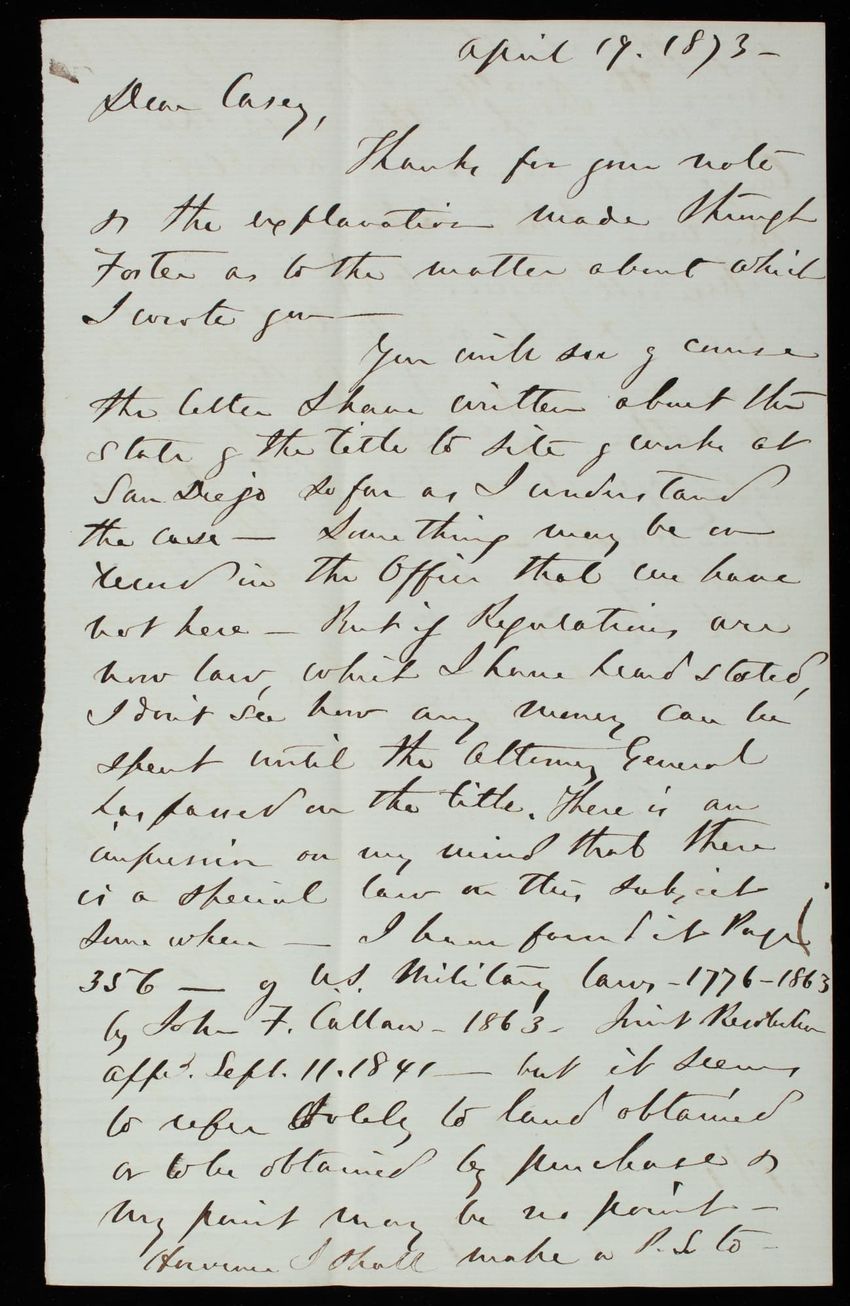 April 19. 1873 -
Dear Casey,
Thanks for your note
& the explanation made through
Foster as to the matter about which
I wrote you —
You will see of course
the letter I have written about the
state of the title to site of works at
San Diego so far as I understand
the case — Something may be on
record in the Office that we have
not here — But if Regulations are
now law, which I have heard stated,
I don't see how any money can be
spent until the Attorney General
has passed on the title. There is an
impression on my mind that there
is a special law on this subject
some where — I have found it Page
356 — of U.S. Military laws - 1776 - 1863
by John F. Callan - 1863 - Joint Resolution
appd. Sept. 11. 1841 — but it seems
to refer solely to land obtained
or to be obtained by purchase &
my point may be no point -
However I shall make a P.S. to -